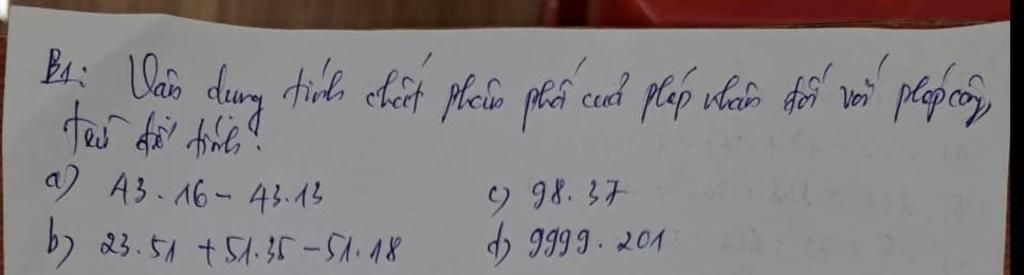 B1: Vận dụng tính chất phân phối của phép nhân đối với phép cộng,
trừ để tính:
a) 43.16 - 43.13
c) 98.37
b) 23.51 + 51.35 - 51.18
d) 9999.201